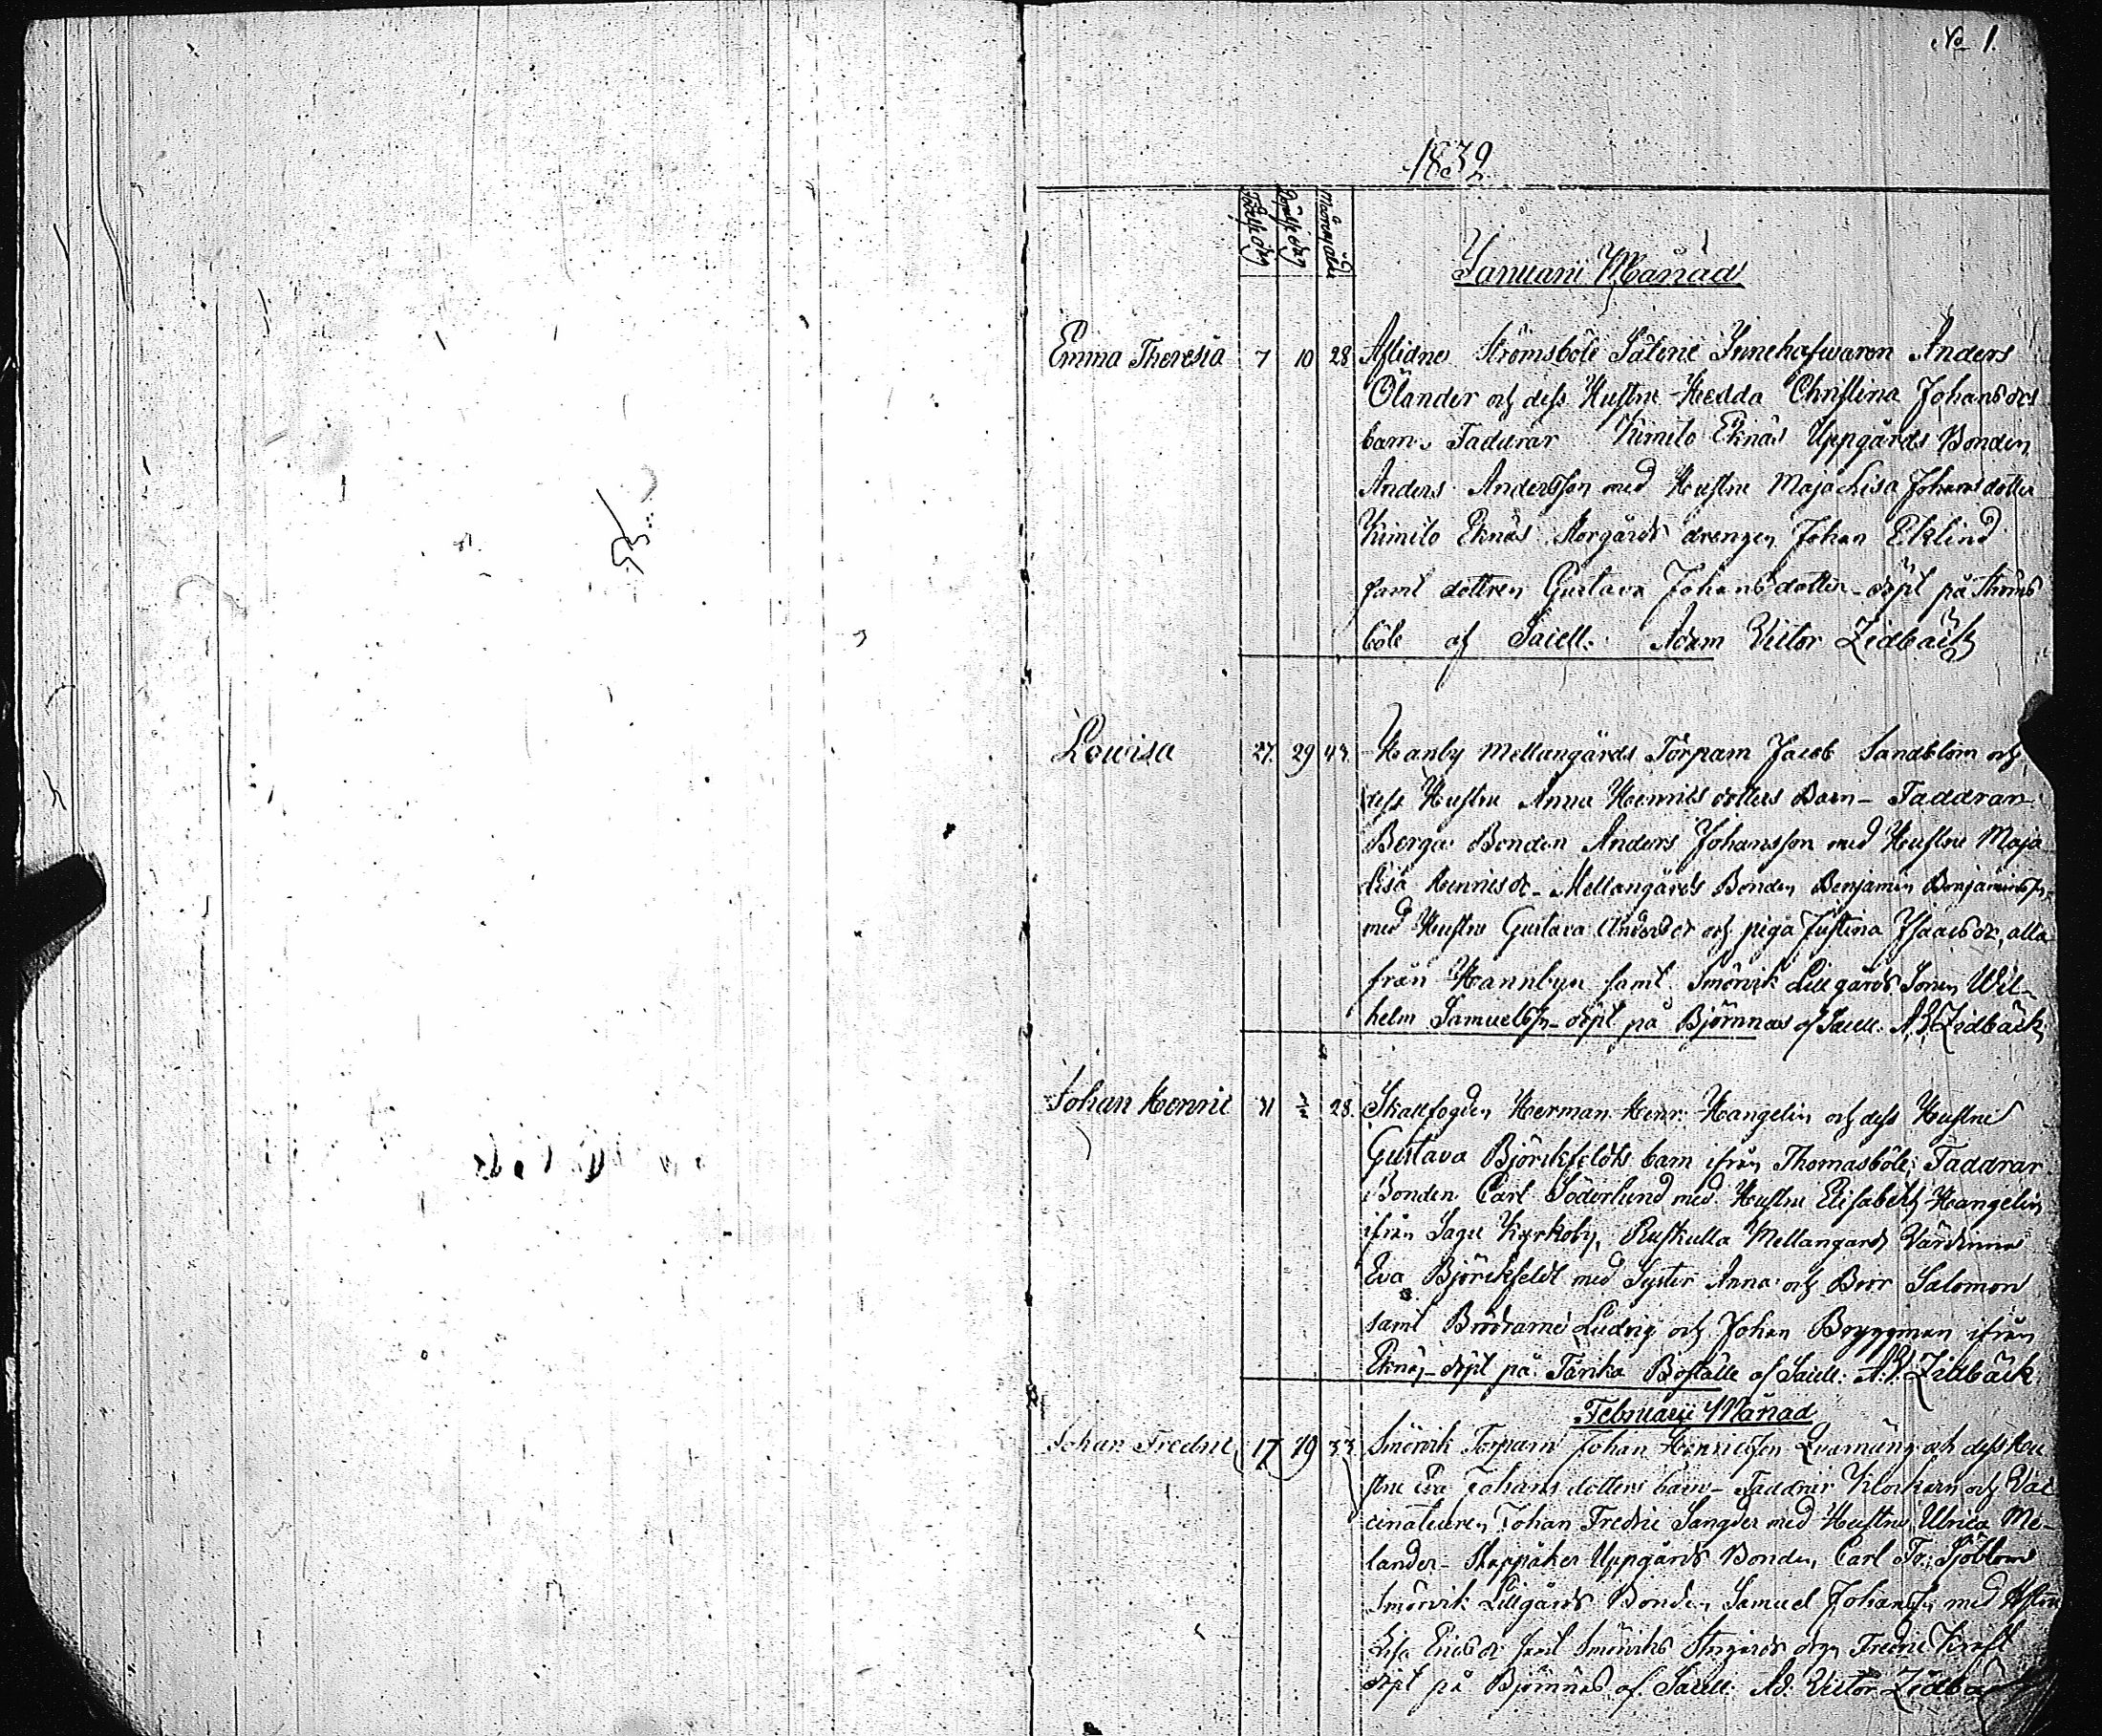 No 1.
1839
Födelse dag
Döpelse dag
Modrens ålder
Januarii Månad
Emma Theresia 7 10 28 Aflidne Strömsböle Säterie Innehafwaren Anders
Öländer och dess Hustru Hedda Christina Johansdrs
barn. Faddrar Kimito Eknäs Uppgårds Bonden
Anders Andersson med Hustru Maja Lisa Johansdotter
Kimito Eknäs Storgårds drengen Johan Eklind
samt dottren Gustava Johansdotter - döpt på Ströms
böle af Sacell. Adam Victor Zidbäck
Lowisa 27. 29 43. Hanby Mellangårds Torparn Jacob Sandblom och
dess Hustru Anna Henricsdotters Barn - Faddrar
Berga Bonden Anders Johansson med Hustru Maja
Lisa Henricsdr - Mellangårds Bonden Benjamin Benjaminss:
med Hustru Gustava Andersdr och piga Justina Isaacsdr, alla
från Hannbyn samt Smörvik Lillgårds Sonen Wil-
helm Samuelss: - döpt på Björnnäs af Sacell. A. V. Zidbäck
Johan Henric 31 28. Skallfogden Herman Henr. Hangelin och dess Hustru
Gustava Björckfeldts barn ifrån Thomasböle; Faddrar
Bonden Carl Söderlund med Hustru Elisabeth Hangelin
ifrån Sagu Kyrkoby, Ruskulla Mellangård Värdinna
Eva Björckfeldt med Syster Anna och Bror Salomon
samt Bröderne Ludvig och Johan Bryggman ifrån
Eknäs - döpt på Tånka Boställe af Sacell. A. V. Zidbäck
Februarii Månad
Johan Fredric 17 19 33 Smörvik Torparn Johan Henricsson och dess Hu
stru Eva Johansdotters barn - Faddrar Klockarn och Vac
cinateuren Johan Fredric Sangder med Hustru Ulrica Me-
lander - Skeppåker Uppgårds Bonden Carl Fr: Sjöblom
Smörvik Lillgårds Bonden Samuel Johanss: med Hstru
Lisa Ericsdr samt Smörviks drg Fredric
döpt på Björnnäs af Sacell. Ad. Victor Zidbäck